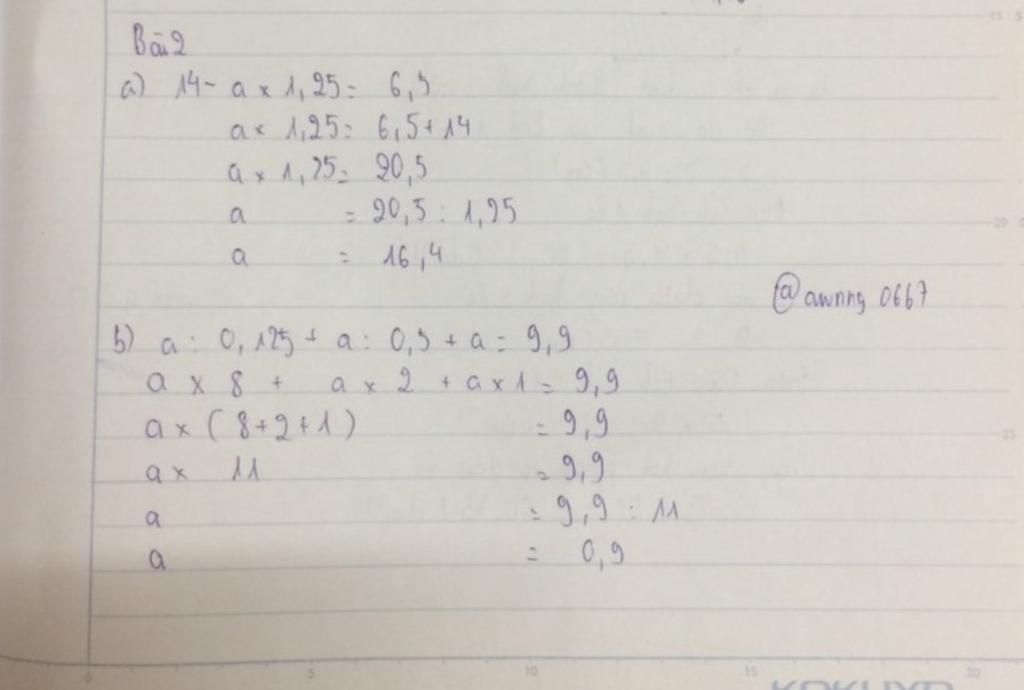 Bài 2
a) 14 - a x 1,25 = 6,5
a x 1,25 = 6,5 + 14
a x 1,25 = 20,5
a = 20,5 : 1,25
a = 16,4
@awnng 0667
b) a : 0,125 + a : 0,5 + a = 9,9
a x 8 + a x 2 + a x 1 = 9,9
a x ( 8 + 2 + 1 ) = 9,9
a x 11 = 9,9
a = 9,9 : 11
a = 0,9
0 5 10 15 20